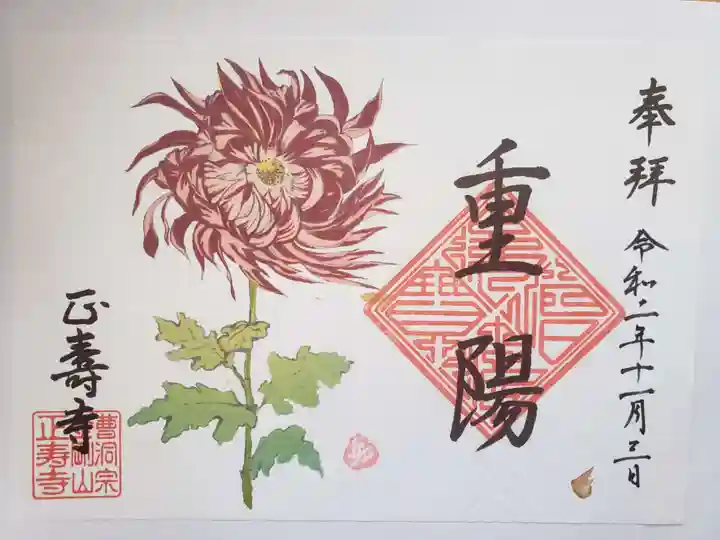 奉拝
令和二年十一月三日
重陽
正壽寺
曹洞宗
剛山
正寿寺